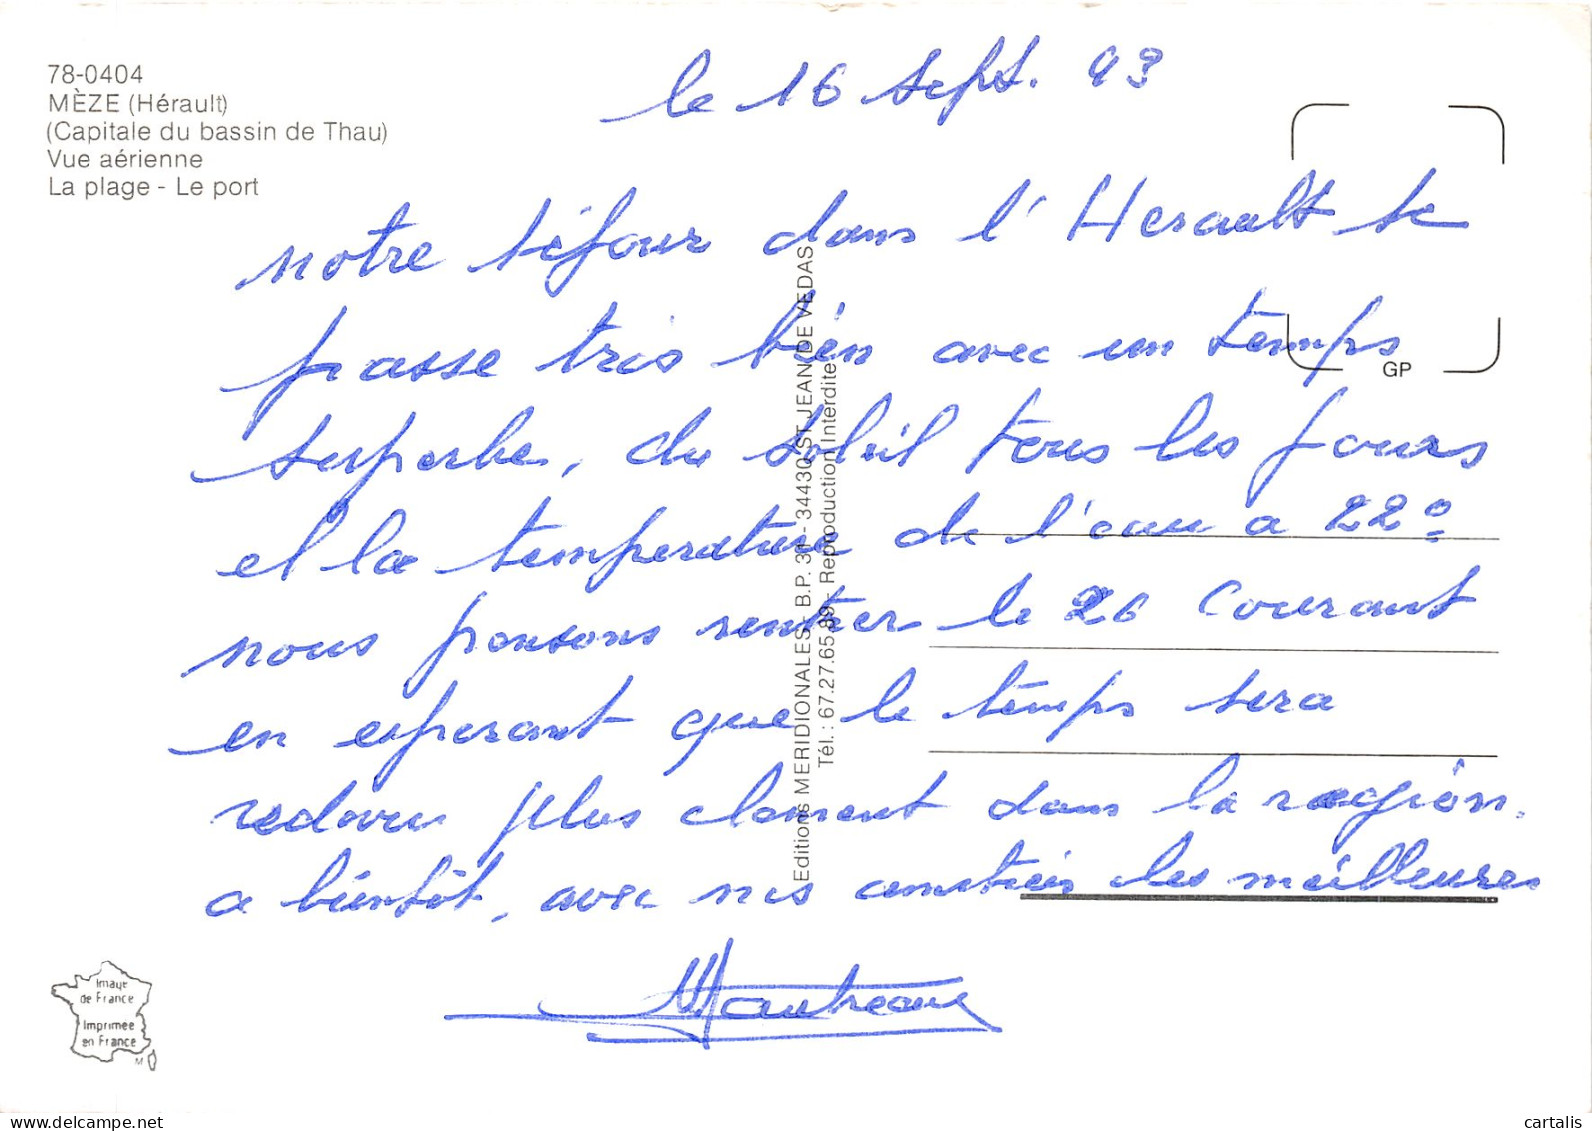 78-0404
MÈZE (Hérault)
(Capitale du bassin de Thau)
Vue aérienne
La plage - Le port
le 16 Sept. 93
notre séjour dans l'Herault se
passe très bien avec un temps
superbe, du soleil tous les jours
et la température de l'eau a 22°
nous pensons rentrer le 26 Courant
en esperant que le temps sera
redevenu plus clement dans la région.
a bientôt, avec nos amitiés les meilleures
GP
Editions MERIDIONALES - B.P. 31 - 34430 ST JEAN DE VEDAS
Tél. : 67.27.65.89 - Reproduction Interdite
Image
de France
Imprimée
en France
M
delcampe.net
cartalis